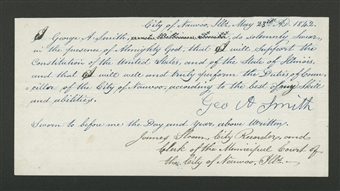 City of Nauvoo, Ills. May 23rd A.D. 1842.
I George A. Smith, do solemnly swear,
in the presence of Almighty God, that I will support the
Constitution of the United States, and of the State of Illinois,
and that I will well and truly perform the Duties of Coun-
cillor of the City of Nauvoo, according to the best of my skill
and abilities.
Geo A Smith
Sworn to before me the Day and Year above Written.
James Sloan, City Recorder, and
Clerk of the Municipal Court of
the City of Nauvoo, Ills.